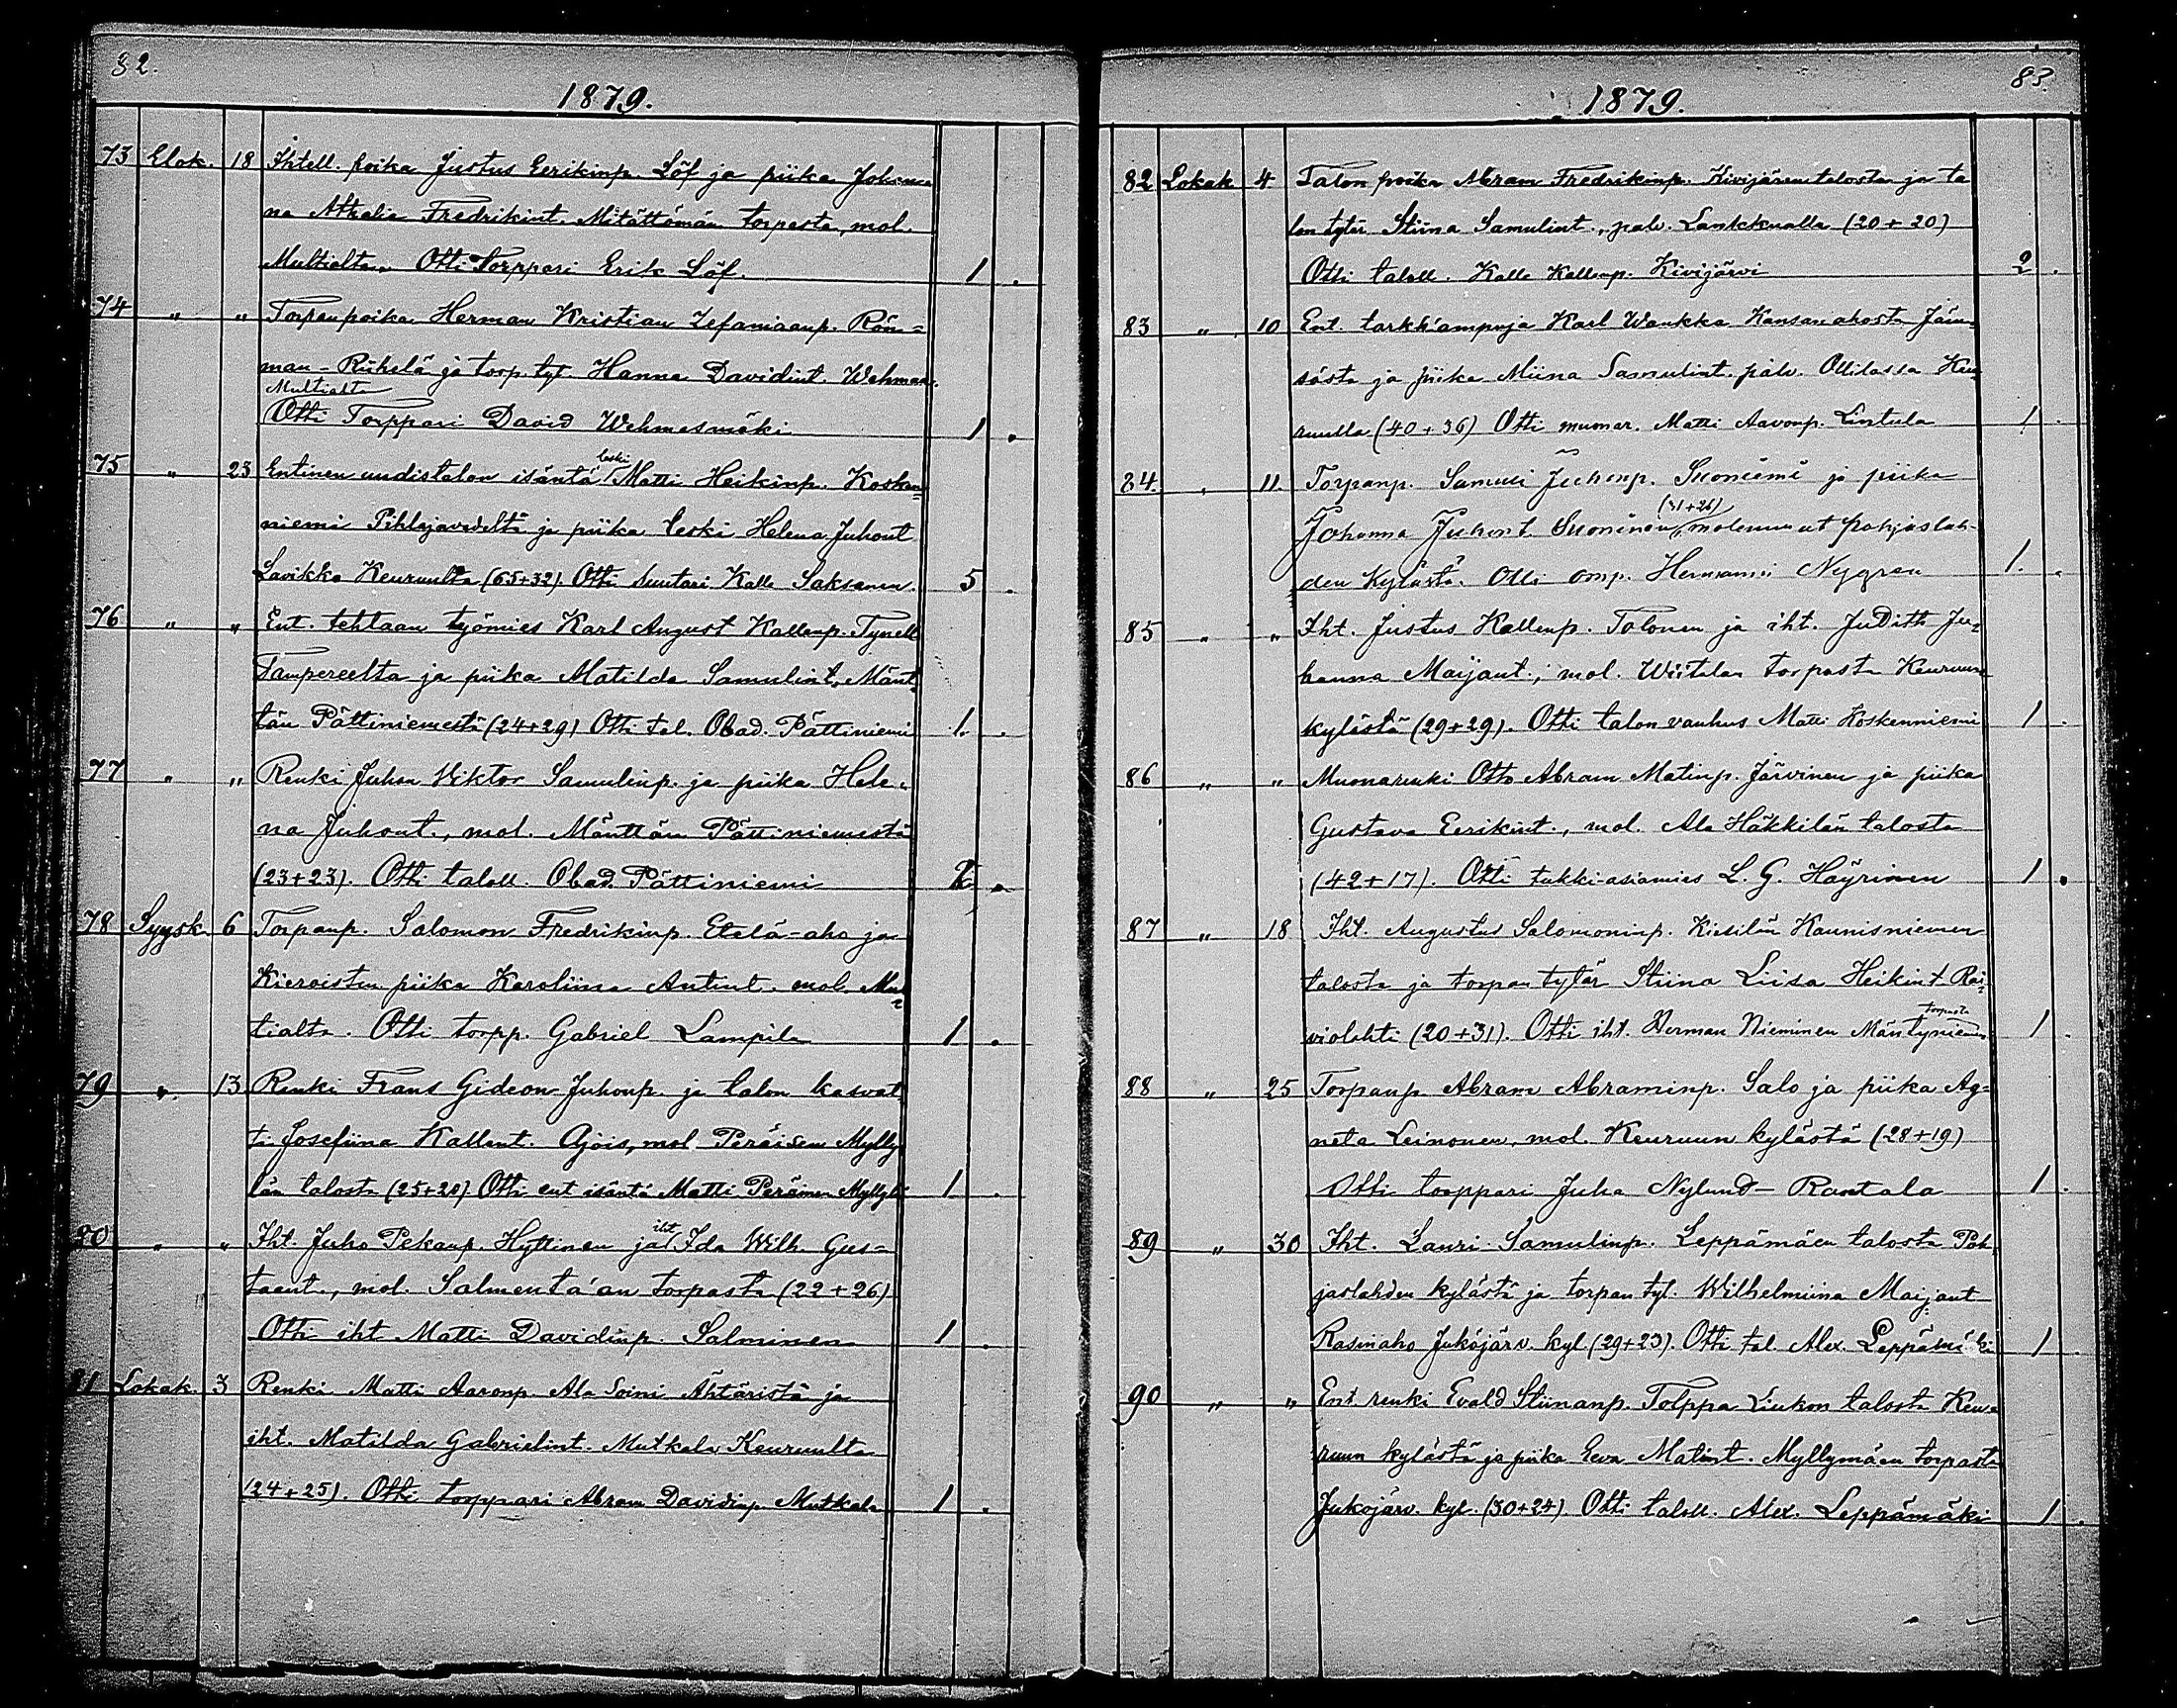 82.
1879.
73 Elok. 18 Ihtell. poika Justus Eerikinp. Löf ja piika Johan-
na Athalia Fredrikint. Mitättömän torpasta, mol.
Multialta. Otti Torppari Erik Löf. 1.
74 " " Torpanpoika Herman Kristian Zefaniaanp. Rön=
man-Riihelä ja torp. tyt. Hanna Davidint. Wehmas.
Multialta
Otti Torppari David Wehmasmäki 1.
75 " 23 Entinen uudistalon isäntä leski Matti Heikinp. Kosken=
niemi Pihlajavedeltä ja piika leski Helena Juhont
Lavikko Keuruulta (65+32). Otti suutari Kalle Saksanen. 5.
76 " " Ent. tehtaan työmies Karl August Kallenp. Tynell
Tampereelta ja piika Matilda Samulint. Mänt=
tän Pättiniemestä (24+29) Otti tal. Obad. Pättiniemi 1.
77 " " Renki Juhan Viktor Samulinp. ja piika Hele-
na Juhont., mol. Mänttän Pättiniemestä
(23+23). Otti taloll. Obad. Pättiniemi
78 Syysk. 6 Torpanp. Salomon Fredrikinp. Etelä-aho ja
Kieroisten piika Karoliina Antint. mol. Mul=
tialta. Otti torpp. Gabriel Lampila 1.
79 " 13 Renki Frans Gideon Juhonp. ja talon kasvat
ti Josefiina Kallent. Ajois, mol Peräisen Mylly
län talosta (25+20) Otti ent isäntä Matti Peräinen Myllylä 1.
80 " " Iht. Juho Pekanp. Hyttinen ja iht Ida Wilh. Gus=
taant., mol. Salmentaan torpasta (22+26)
Otti iht Matti Davidinp. Salminen 1.
81 Lokak. 3 Renki Matti Aaronp. Ala Soini Ähtäristä ja
iht. Matilda Gabrielint. Mutkala Keuruulta
(24+25). Otti torppari Abram Davidinp. Mutkala 1.
83.
1879.
82 Lokak 4 Talon poika Abram Fredrikinp. Kivijärven talosta ja ta
lon tytär Stiina Samulint., palv. Lankkualla (20+20)
Otti taloll. Kalle Kallenp. Kivijärvi 2.
83 " 10 Ent. tarkk'ampuja Karl Wankka Kansanahosta Jäm-
sässtä ja piika Miina Samulint. palv. Ollilassa Keu-
ruulla (40+36) Otti muonar. Matti Aavonp. Lintula 1.
84. " 11. Torpanp. Samuli Juhonp. Suoniemi ja piika
Johanna Juhont. Suoninen, (31+26) molemmat Pohjaslah-
den kylästä. Otti omp. Hermanni Nygren 1.
85 " " Iht. Justus Kallenp. Tolonen ja iht. Judith Ju=
hanna Maijant., mol. Wiitalan torpasta Keuruun
kylästä (29+29). Otti talon vanhus Matti Koskenniemi 1.
86 " " Muonarenki Otto Abram Matinp. Järvinen ja piika
Gustava Eerikint., mol. Ala Häkkilän talosta
(42+17). Otti tukki-asiamies L. G. Häyrinen 1.
87 " 18 Iht. Augustus Salomoninp. Kiesilän Kaunisniemen
talosta ja torpan tytär Stiina Liisa Heikint. Rai=
violahti (20+31). Otti iht. Herman Nieminen Mäntyniemen torpasta 1.
88 " 25 Torpanp Abram Abraminp. Salo ja piika Ag=
neta Leinonen, mol. Keuruun kylästä (28+19)
Otti torppari Juha Nylund-Rantala 1.
89 " 30 Iht. Lauri Samulinp. Leppämäen talosta Poh
jaslahden kylästä ja torpan tyt. Wilhelmiina Maijant
Rasinaho Jukojärv. kyl. (29+23). Otti tal. Alex. Leppämäki 1.
90 " " Ent renki Evald Stiinanp. Tolppa Liukon talosta Keu=
ruun kylästä ja piika Eeva Matint. Myllymäen torpasta
Jukojärv. kyl. (30+24). Otti taloll. Alex. Leppämäki 1.